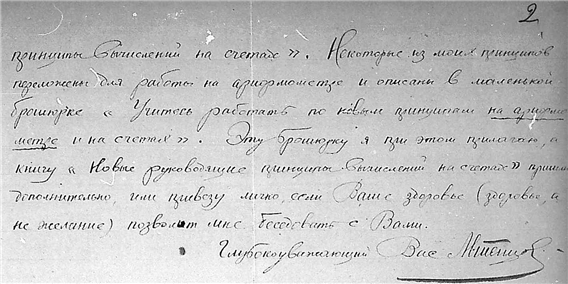 2
принципы вычислений на счетах». Некоторые из моих принципов
переложены для работы на арифмометре и описаны в маленькой
брошюрке «Учитесь работать по новым принципам на арифмо
метре и на счетах». Эту брошюрку я при этом прилагаю, а
книгу «Новые руководящие принципы вычислений на счетах» пришлю
дополнительно, или привезу лично, если Ваше здоровье (здоровье, а
не желание) позволит мне беседовать с Вами.
Глубокоуважающий Вас